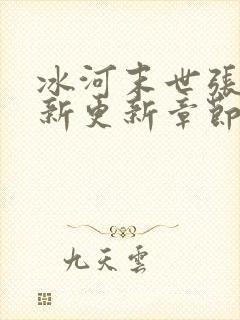 冰河末世張
新更新章節
九天雲